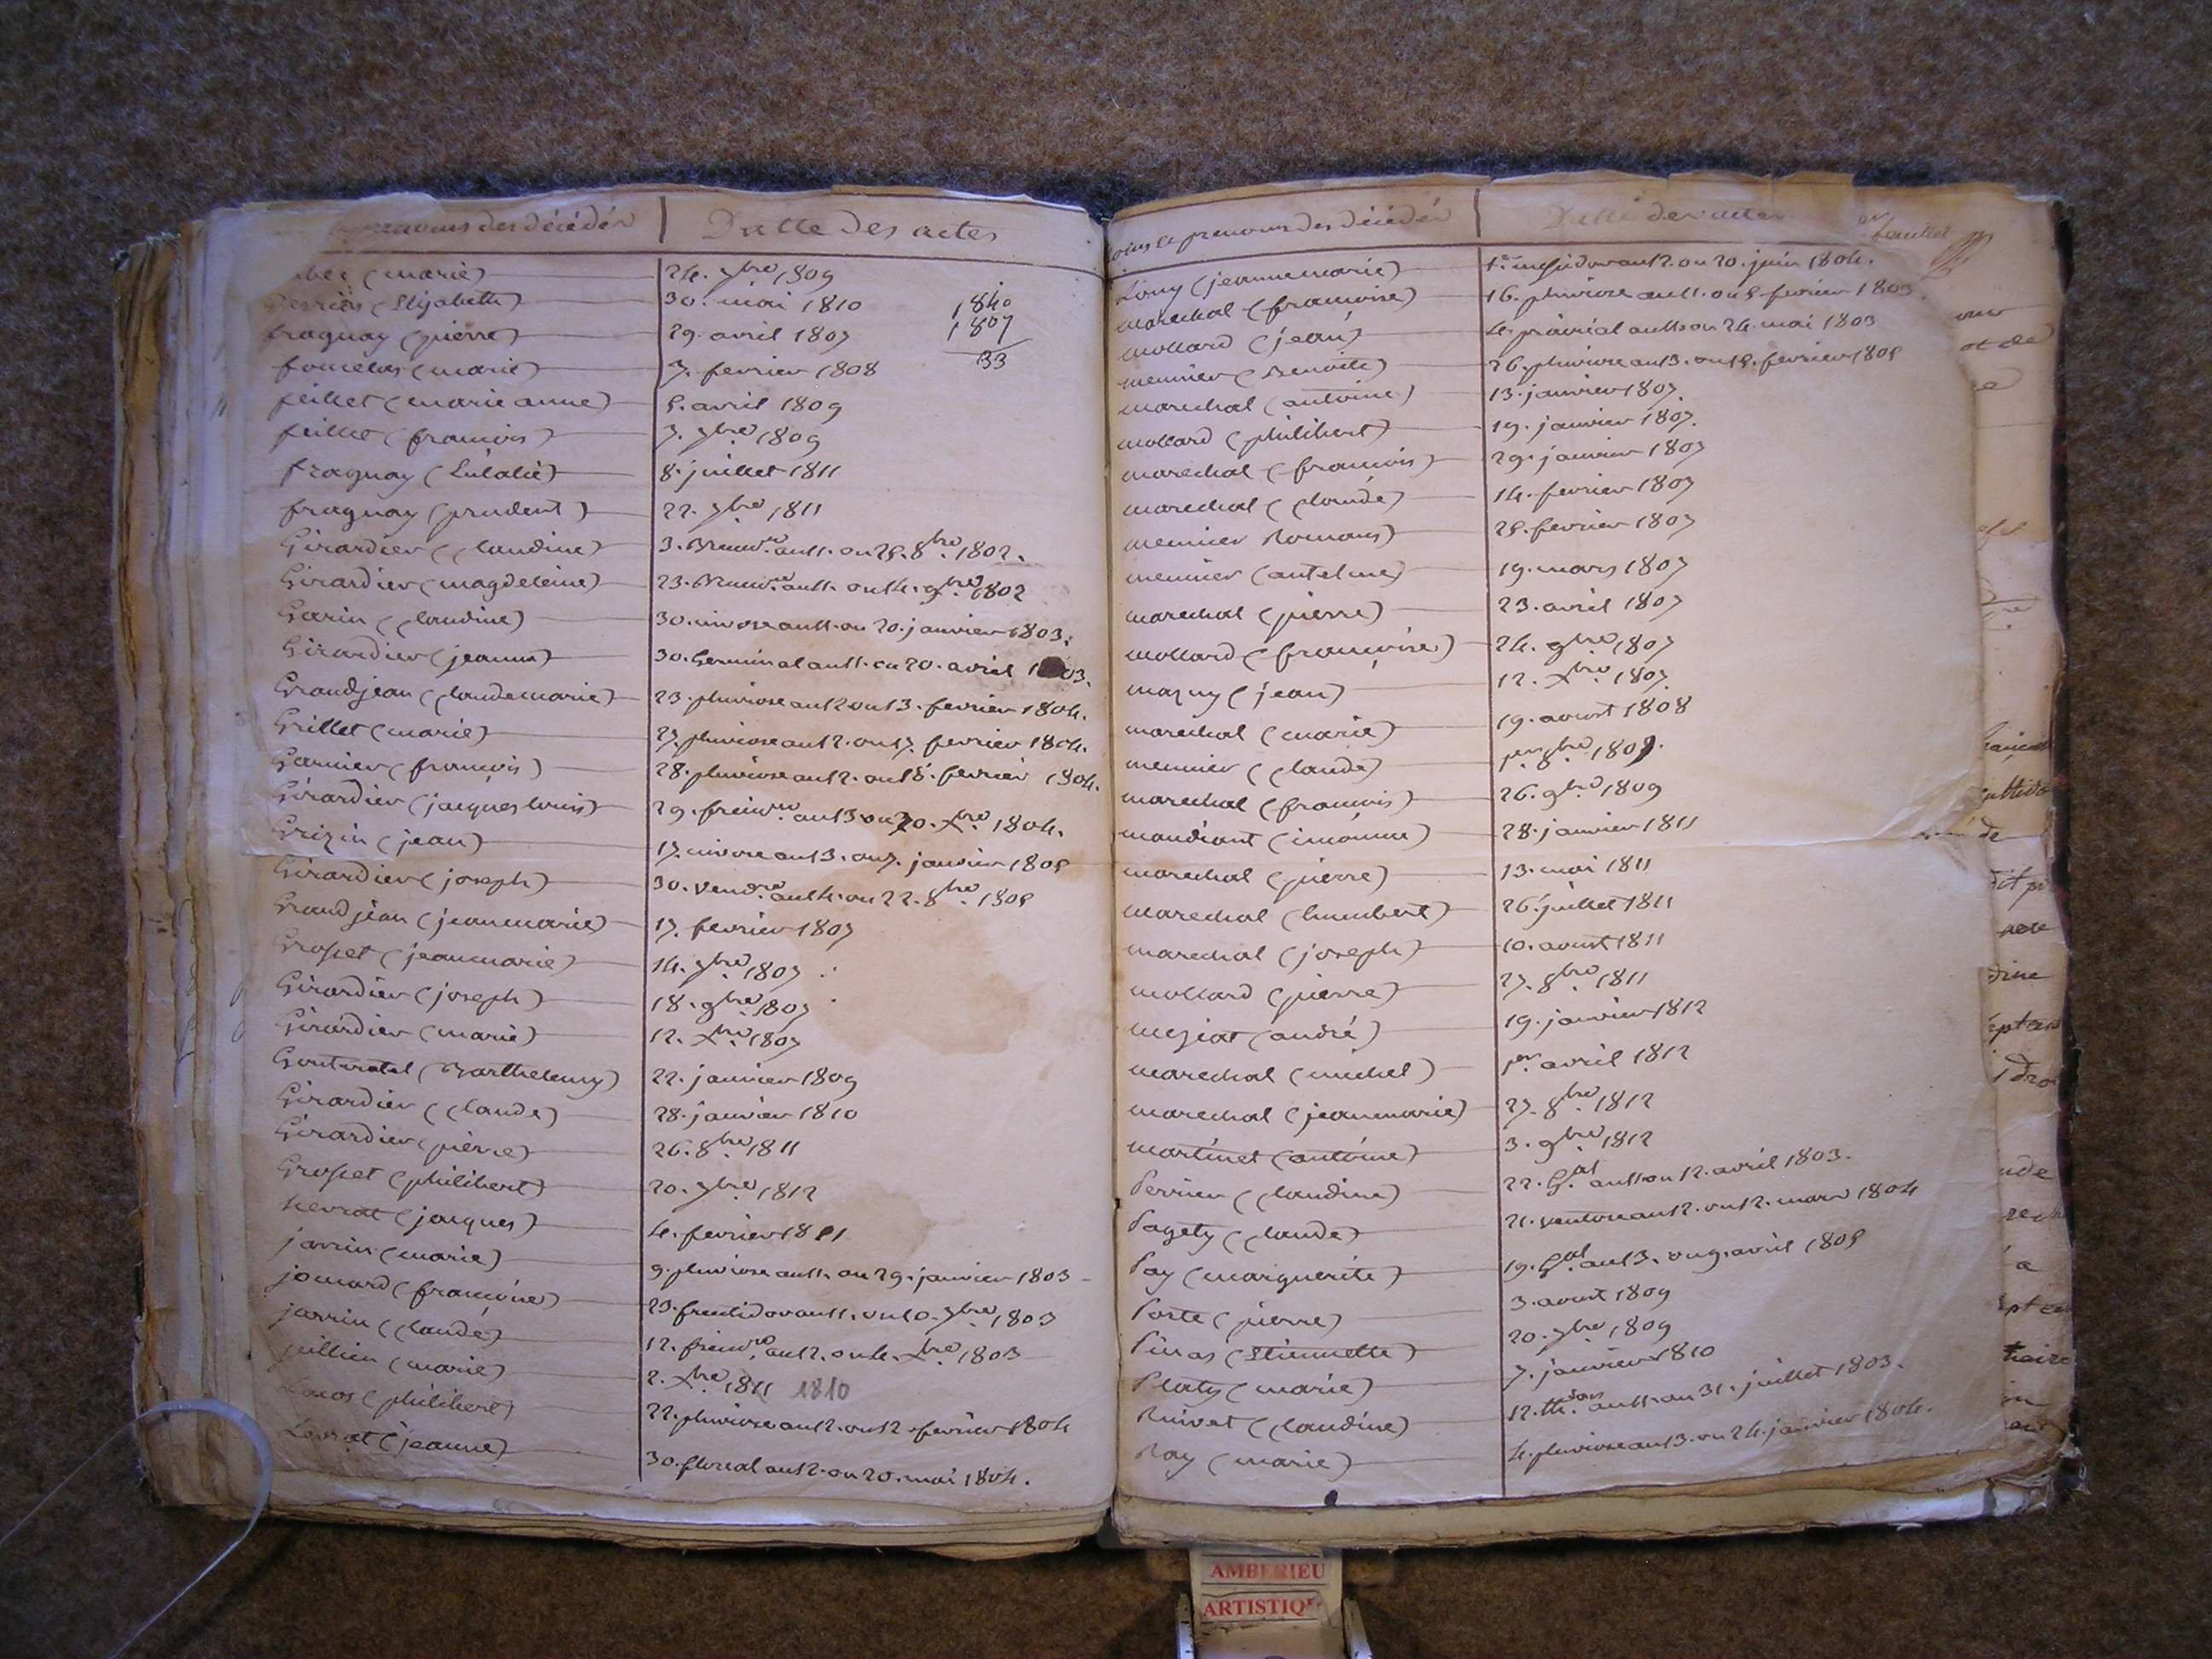 prenoms des décédés | Datte des actes
(marie) 24. 7bre 1809
(Elizabeth) 30. mai 1810
fraguay (pierre) 29. avril 1807
1840
1807
33
(marie) 7. fevrier 1808
feillet (marie anne) 5. avril 1809
feillet (francois) 7. 7bre 1809
fraguay (Eulalie) 8. juillet 1811
fraguay (prudent) 22. 7bre 1811
Girardier (Claudine) 3. Brum.re an 11. ou 25. 8bre. 1802.
Girardier (magdeleine) 23. Brum.re an 11. ou 14. 9bre. 1802
Garin (Claudine) 30. nivose an 11. ou 20. janvier 1803.
Girardier (jeanne) 30. Germinal an 11. ou 20. avril 1803.
Grandjean (Claudemarie) 23. pluviose an 12 ou 13. fevrier 1804.
Grillet (marie) 27. pluviose an 12. ou 17. fevrier 1804.
Garnier (francois) 28. pluviose an 12. ou 18. fevrier 1804.
Girardier (jacques louis) 29. frim.re an 13 ou 20. Xbre. 1804.
Grizin (jean) 17. nivose an 13. ou 7. janvier 1805
Girardier (joseph) 30. Vend.re an 14. ou 22. 8bre. 1805
Grandjean (jeanmarie) 17. fevrier 1807
Grosset (jeanmarie) 14. 7bre. 1807
Girardier (joseph) 18. 9bre. 1807
Girardier (marie) 12. Xbre. 1807
(Barthelemy) 22. janvier 1809
Girardier (Claude) 28. janvier 1810
Girardier (pierre) 26. 8bre. 1811
Grosset (philibert) 20. 7bre. 1812
herrat (jacques) 4. fevrier 1811
jarrin (marie) 9. pluviose an 11. ou 29. janvier 1803
jomard (francoise) 23. fructidor an 11. ou 10. 7bre. 1803
jarrin (Claude) 12. frim.re an 12. ou 4. Xbre. 1803
jullien (marie) 2. Xbre. 1811 1810
(philibert) 22. pluviose an 12. ou 12. fevrier 1804
Levrat (jeanne) 30. floreal an 12. ou 20. mai 1804.
noms et prenoms des décédés | Datte des actes
feuillet
Lony (jeannemarie) 1.er messidor an 12. ou 20. juin 1804.
marechal (francoise) 16. pluviose an 11. ou 5 fevrier 1803.
mollard (jean) 4. prairial an 11. ou 24. mai 1803
meunier (Benoite) 26. pluviose an 13. ou 15. fevrier 1805
marechal (antoine) 13. janvier 1807.
mollard (philibert) 19. janvier 1807.
marechal (francois) 29. janvier 1807
marechal (Claude) 14. fevrier 1807
meunier Romans) 25. fevrier 1807
meunier (antelme) 19. mars 1807
marechal (pierre) 23. avril 1807
mollard (francoise) 24. 9bre. 1807
mazuy (jean) 12. Xbre. 1807.
marechal (marie) 19. aoust 1808
meunier (Claude) 1.er 8bre. 1809.
marechal (francois) 26. 9bre. 1809
mandiant (inconnu) 28. janvier 1811
marechal (pierre) 13. mai 1811
marechal (humbert) 26. juillet 1811
marechal (joseph) 10. aoust 1811
mollard (pierre) 27. 8bre. 1811
meziat (andré) 19. janvier 1812
marechal (michel) 1.er avril 1812
marechal (jeanmarie) 27. 8bre. 1812
martinet (antoine) 3. 9bre. 1812
Perrier (Claudine) 22. G.al an 11 ou 12. avril 1803.
Pagety (Claude) 21. ventose an 12. ou 12. mars 1804
Pay (marguerite) 19. G.al an 13. ou 9. avril 1805
Poste (pierre) 3. aoust 1809
Pinas (Etiennette) 20. 7bre. 1809
Platy (marie) 7. janvier 1810
Ruivet (Claudine) 12. th.dor an 11. ou 31. juillet 1803.
Ray (marie) 4. pluviose an 13. ou 24. janvier 1804.
AMBERIEU
ARTISTIQ